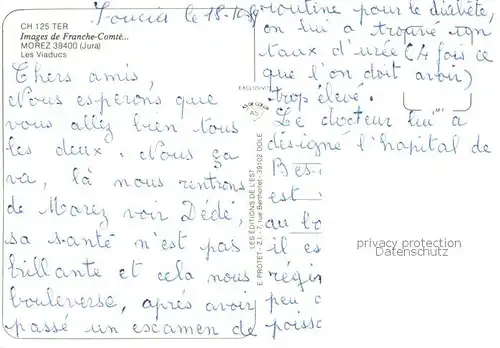 CH 125 TER
Images de Franche-Comté...
MOREZ 39400 (Jura)
Les Viaducs
le 18-10-
Chers amis,
Nous espérons que
vous allez bien tous
les deux. Nous ça
va, là nous rentrons
de Morez voir Dédé,
sa santé n'est pas
brillante et cela nous
bouleverse, après avoir
passé un escamen de
EXCLUSIVITÉ
AS
LES ÉDITIONS DE L'EST
E. PROTET - Z.I. - 7, rue Berthollet - 39102 DOLE
routine pour le diabète,
on lui a trouvé un
taux d'urée (4 fois ce
que l'on doit avoir)
trop élevé.
Le docteur lui a
désigné l'hapital de
Bes
est
au
il es
régin
peu
poisso
privacy protection
Datenschutz